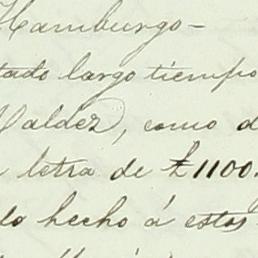 Hamburgo-
tado largo tiempo
Valdez, como d
letra de £1100.
lo hecho á estos